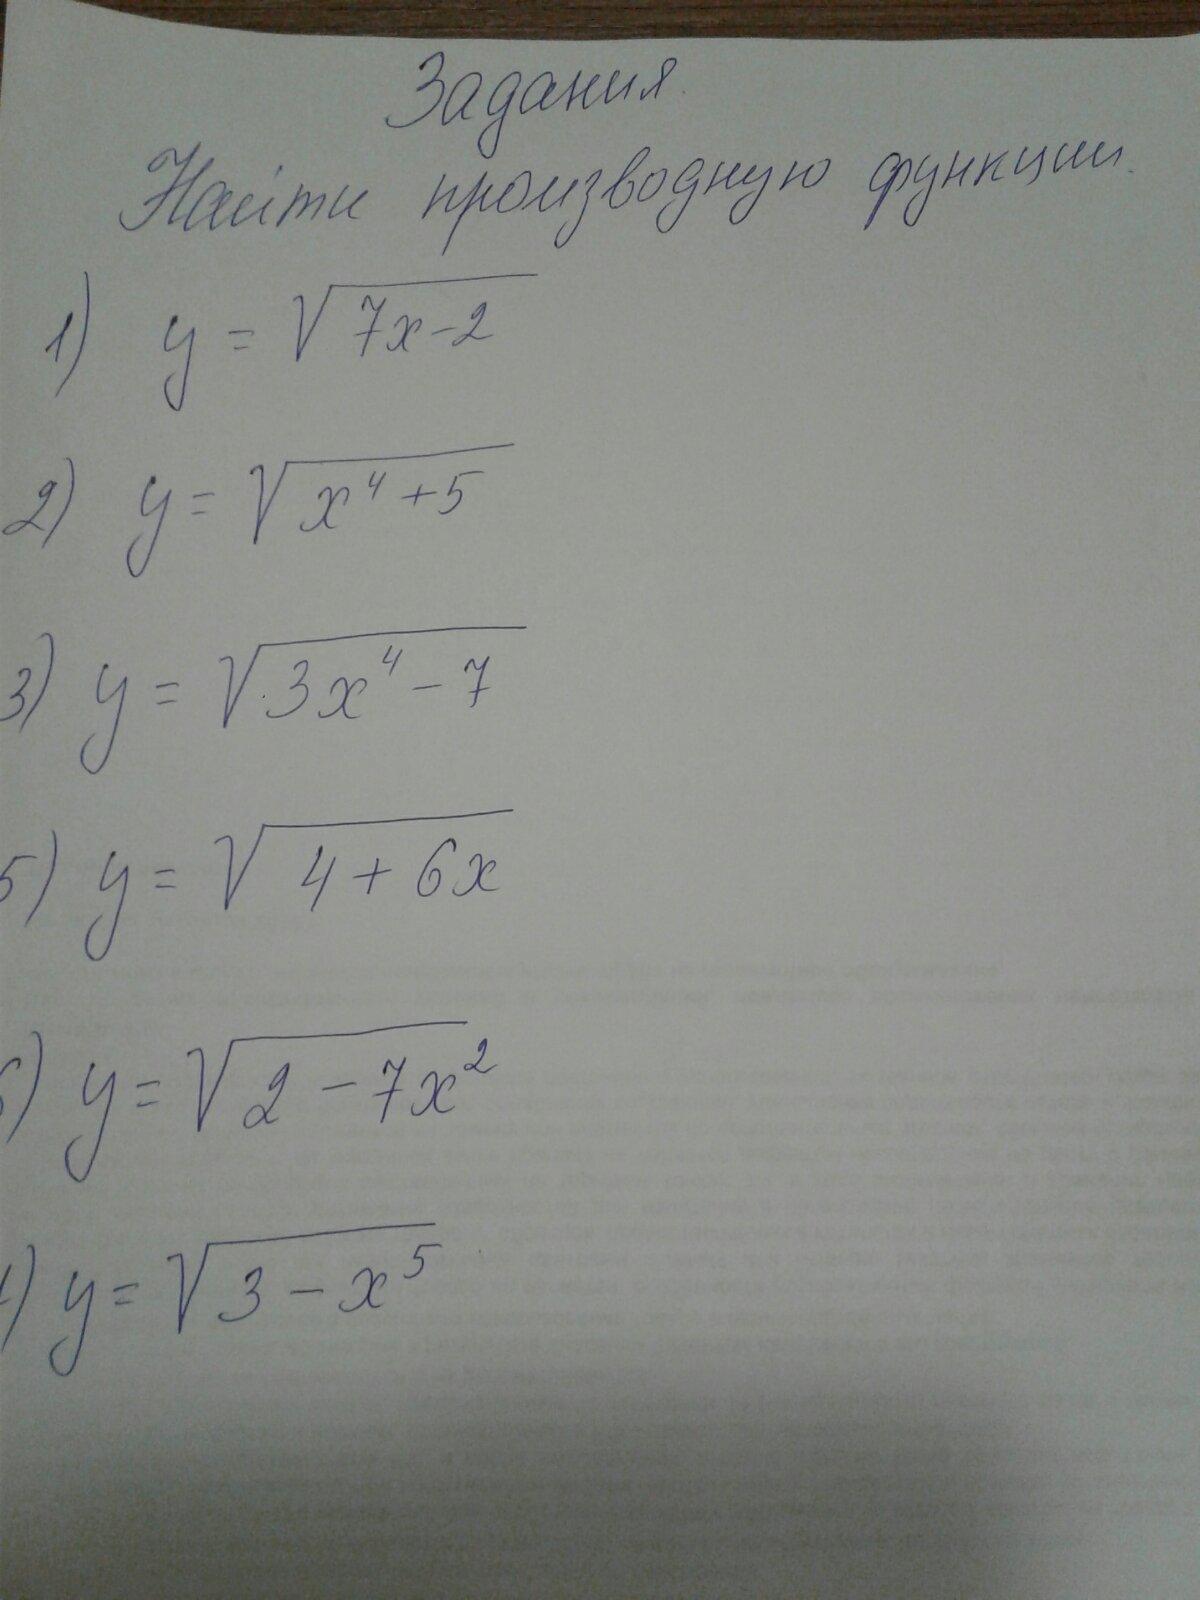 Задания
Найти производную функции.
1) y = √7x-2
2) y = √x⁴+5
3) y = √3x⁴-7
5) y = √4+6x
6) y = √2-7x²
) y = √3-x⁵